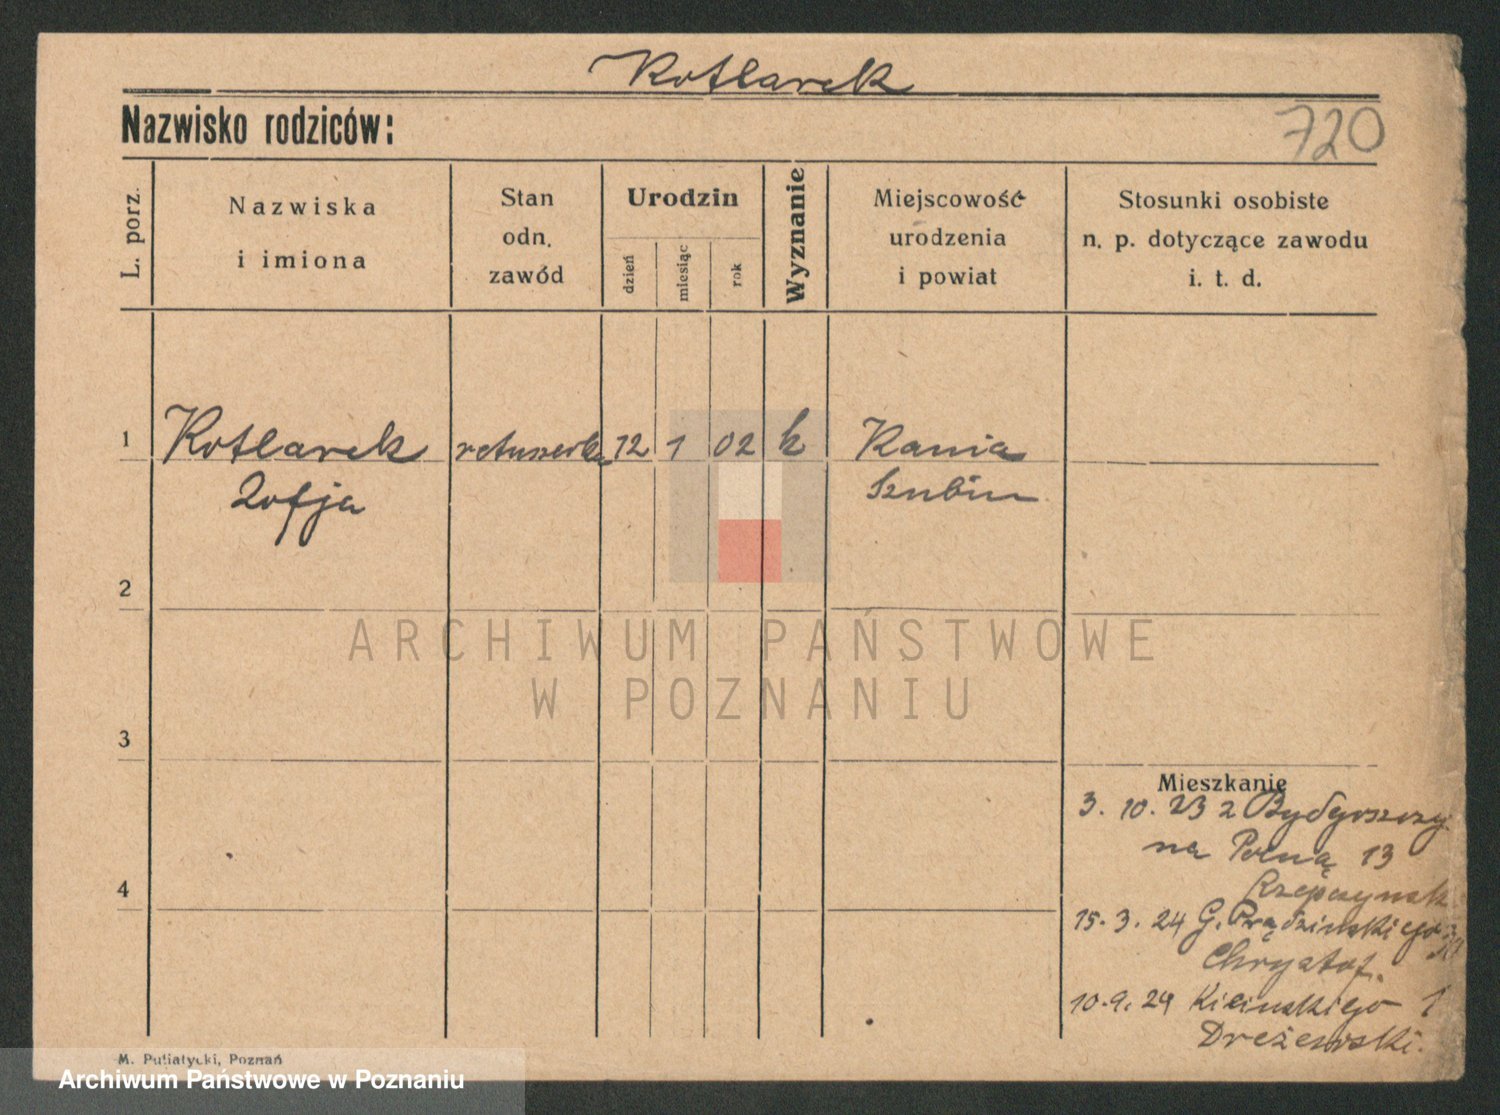 Kotlarek
Nazwisko rodziców:
720
L. porz.
Nazwiska
i imiona
Stan
odn.
zawód
Urodzin
dzień
miesiąc
rok
Wyznanie
Miejscowość
urodzenia
i powiat
Stosunki osobiste
n. p. dotyczące zawodu
i. t. d.
1 Kotlarek retuszerka 12 1 02 k Kania
Zofja Szubin
2
ARCHIWUM PAŃSTWOWE
W POZNANIU
3
Mieszkanie
3. 10. 23 z Bydgoszczy
na Polną 13
Rzepczynsk
4
15. 3. 24 G. Prądzinskiego
Chrystof.
10. 9. 24 Kilinskiego 1
Dreżewski.
M. Putiatycki, Poznań
Archiwum Państwowe w Poznaniu